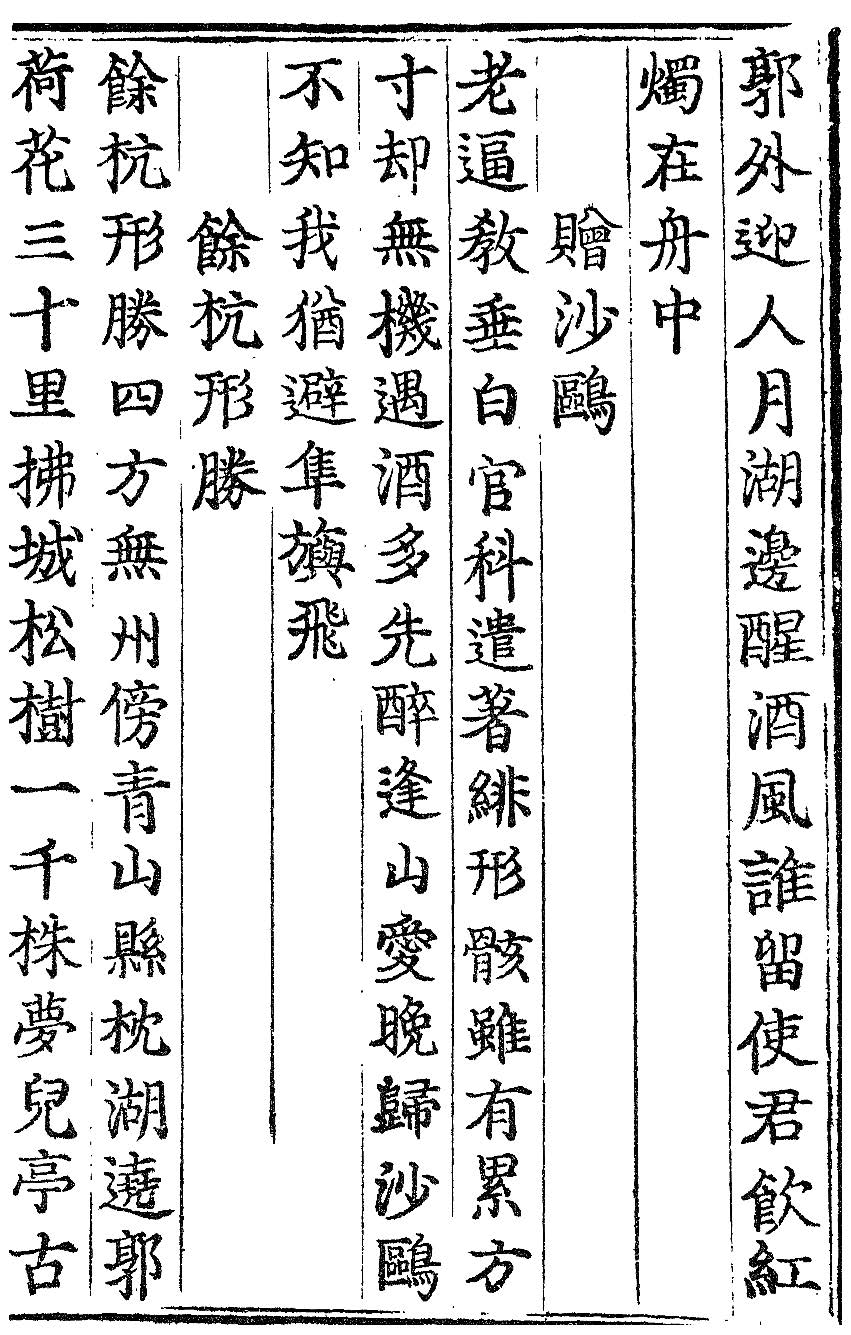 郭外迎人月湖邊醒酒風誰留使君飮紅
燭在舟中
贈沙鷗
老逼教垂白官科遣著緋形骸雖有累方
寸却無機遇酒多先醉逢山愛晚歸沙鷗
不知我猶避隼旟飛
餘杭形勝
餘杭形勝四方無州傍青山縣枕湖遶郭
荷花三十里拂城松樹一千株夢兒亭古